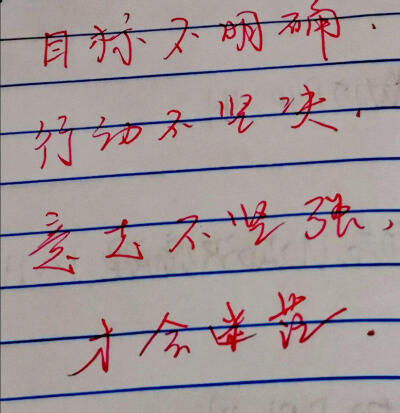 目标不明确.
行动不坚决.
意志不坚强,
才会迷茫.